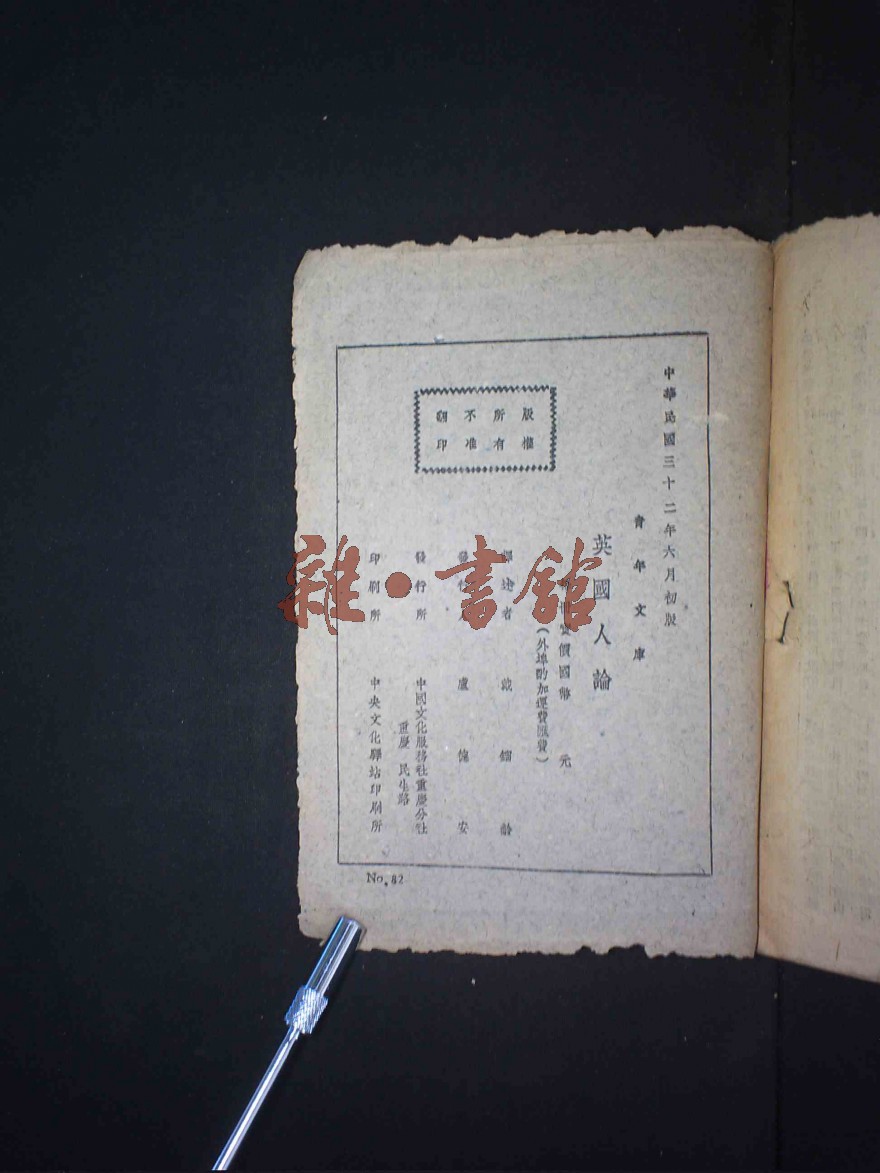 中華民國三十二年六月初版
青年文庫
英國人論
價國幣 元
(外埠酌加運費匯費)
述者 戴鎦齡
發 盧 安
發行所 中國文化服務社重慶分社
重慶 民生路
印刷所 中央文化驛站印刷所
版權
所有
不准
翻印
No. 82
雜·書館